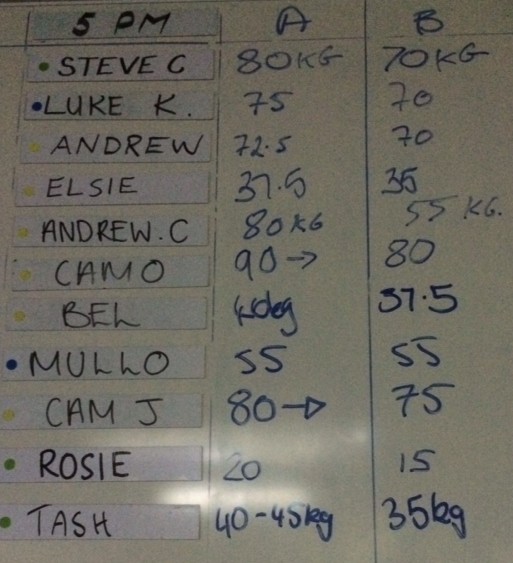 5 PM A B
STEVE C 80KG 70KG
LUKE K. 75 70
ANDREW 72.5 70
ELSIE 37.5 35
ANDREW.C 80KG 55 KG.
CAMO 90→ 80
BEL 40kg 37.5
MULLO 55 55
CAM J 80→ 75
ROSIE 20 15
TASH 40-45kg 35kg